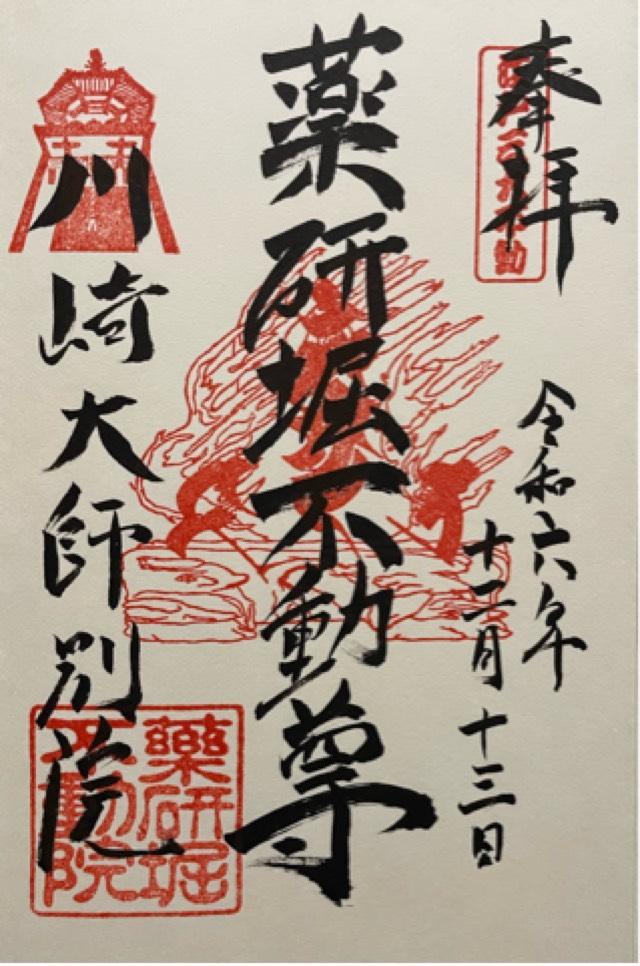 奉拝
令和六年
十二月十三日
薬研堀不動尊
川崎大師別院
藥研堀
不動院